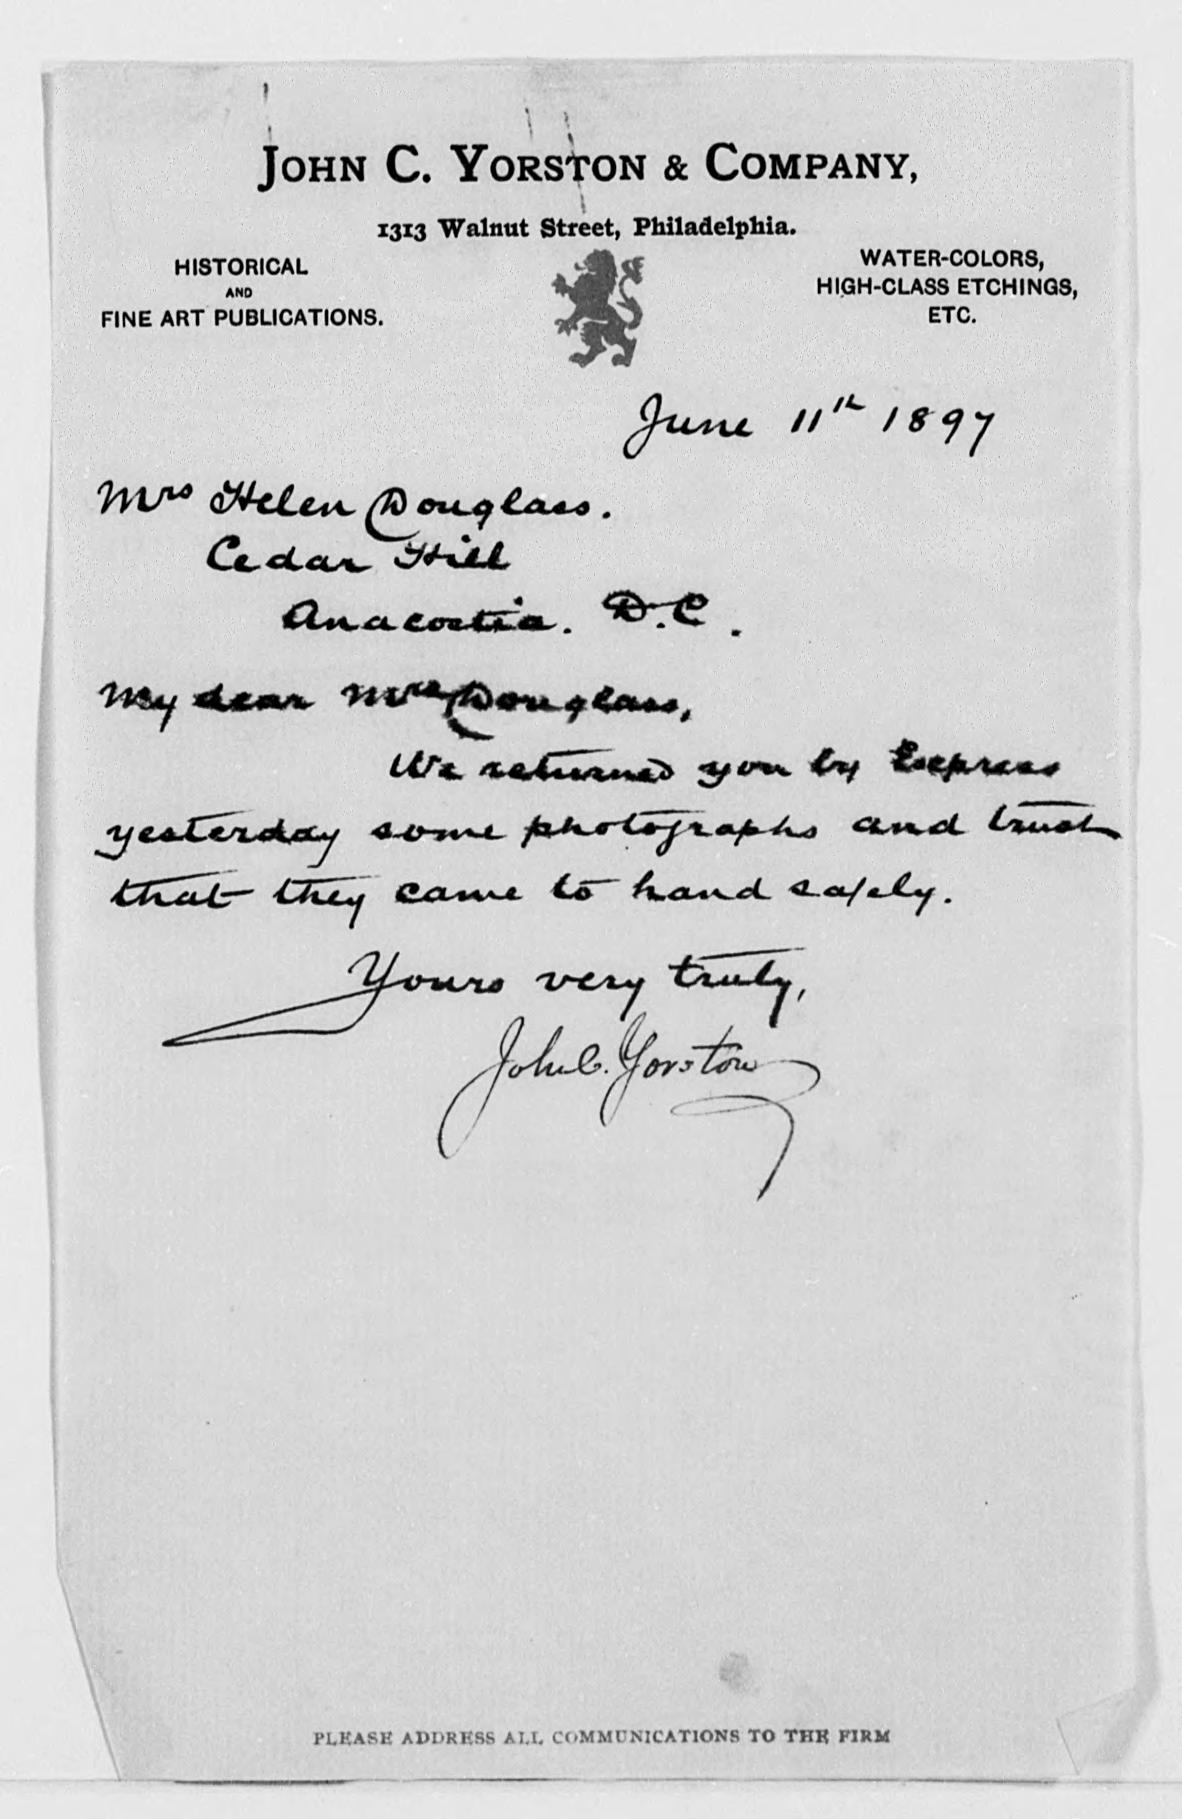 JOHN C. YORSTON & COMPANY,
1313 Walnut Street, Philadelphia.
HISTORICAL
AND
FINE ART PUBLICATIONS.
WATER-COLORS,
HIGH-CLASS ETCHINGS,
ETC.
June 11th 1897
Mrs Helen Douglass.
Cedar Hill
Anacostia. D.C.
My dear Mrs Douglass,
We returned you by Express
yesterday some photographs and trust
that they came to hand safely.
Yours very truly,
John C. Yorston
PLEASE ADDRESS ALL COMMUNICATIONS TO THE FIRM